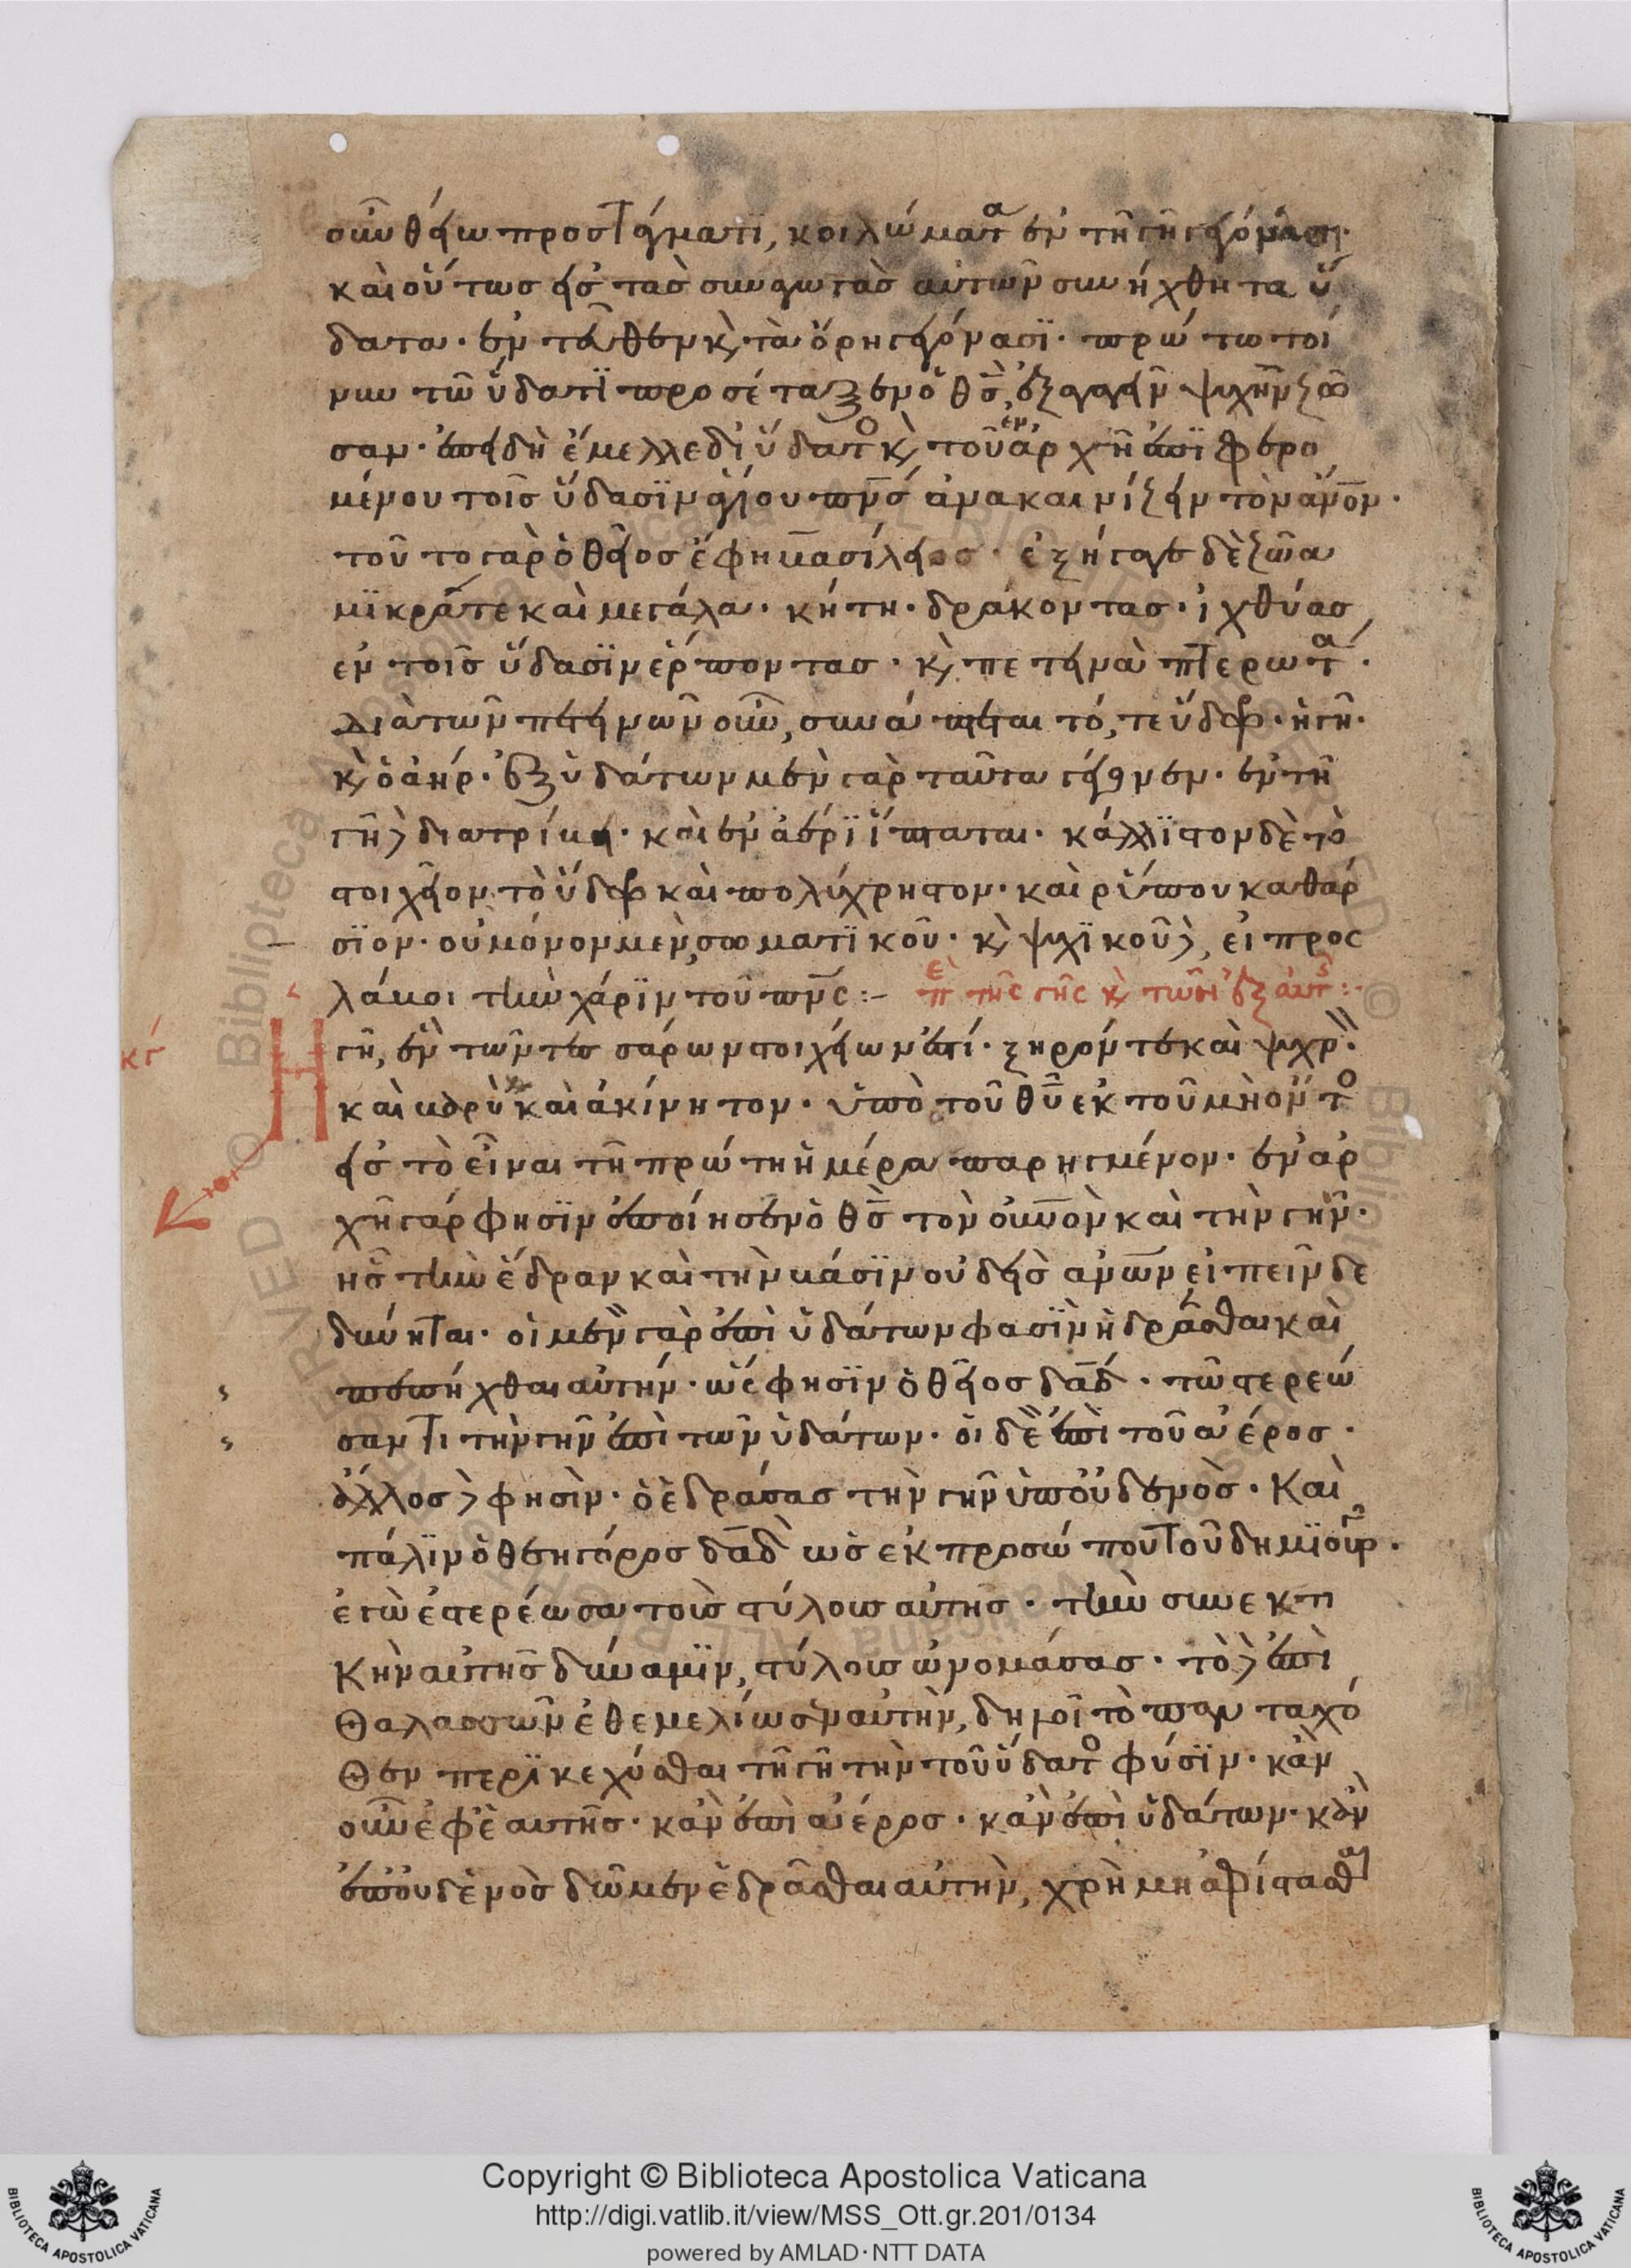 σὺν θείω προστάγματϊ, κοιλώματα ἐν τῆ γῆ γεγόνασι·
καὶ οὕτως εἰς τὰς συναγωγὰς αὐτῶν συνήχθη τα ὕ
δατα· ἐντεῦθεν κ τὰ ὄρη γεγόνασϊ· πρώτω τοί
νυν τῶ ὕδατϊ προσέταξεν ὁ θς, ἐξαγαγεῖν ψυχὴν ζῶ
σαν· ἐπειδὴ ἔμελλε δι' ὕδατος κ τοῦ ἐν ἀρχῆ ἐπϊφερο
μένου τοῖς ὕδασϊν ἁγίου πνς ἀνακαινίζειν τὸν ἄνον·
τοῦτο γὰρ ὁ θεῖος ἔφη βασίλειος· ἐξήγαγε δὲ ζῶα
μϊκρά τε καὶ μεγάλα· κήτη· δράκοντας· ἰχθύας
ἐν τοῖς ὕδασϊν ἕρποντας· κ πετεινὰ πτερωτά·
διὰ τῶν πετεινῶν οὖν, συνάπτεται τό, τε ὕδωρ· ἡ γῆ·
κ ὁ ἀήρ· ἐξ ὑδάτων μὲν γὰρ ταῦτα γέγονεν· ἐν τῆ
γῆ δὲ διατρίβει· καὶ ἐν ἀέρϊ ἵπταται· κάλλϊστον δὲ τὸ
στοιχεῖον τὸ ὕδωρ καὶ πολύχρηστον· καὶ ῥύπου καθάρ
σϊον· οὐ μόνον μὲν σωματϊκοῦ· κ ψυχϊκοῦ δὲ, εἰ προς
λάβοι τὴν χάρϊν τοῦ πνς :– ἐπὶ τῆς γῆς κ τῶν ἐξ αὐτῆς :·
κγ Η γῆ, ἓν τῶν τεσσάρων στοιχείων ἐστί· ξηρόν τε καὶ ψυχρὸν·
καὶ βαρὺ καὶ ἀκίνητον· ὑπὸ τοῦ θυ ἐκ τοῦ μὴ ὄντος
εἰς τὸ εἶναι τῆ πρώτη ἡμέρα παρηγμένον· ἐν ἀρ
χῆ γάρ φησϊν ἐποίησεν ὁ θς τὸν οὐνον καὶ τὴν γῆν·
ἧς τὴν ἕδραν καὶ τὴν βάσϊν οὐδεὶς ἀνων εἰπεῖν δε
δύνηται· οἱ μὲν γὰρ ἐπὶ ὑδάτων φασὶν ἡδρᾶσθαι καὶ
πεπῆχθαι αὐτήν· ὥς φησϊν ὁ θεῖος δαδ· τῶ στερεώ
σαντι τὴν γῆν ἐπὶ τῶν ὑδάτων· οἱ δὲ ἐπὶ τοῦ ἀέρος·
ἄλλος δὲ φησὶν· ὁ ἑδράσας τὴν γῆν ἐπ' οὐδενὸς· Καὶ
πάλϊν ὁ θεηγόρος δαδ ὡς ἐκ προσώπου τοῦ δημϊουργοῦ·
ἐγὼ ἐστερέωσα τοὺς στύλους αὐτῆς· τὴν συνεκτι
κὴν αὐτῆς δύναμϊν, στύλους ὠνομάσας· τὸ δὲ ἐπὶ
θαλασσῶν ἐθεμελίωσεν αὐτὴν, δηλοῖ τὸ πανταχό
θεν περϊκεχύσθαι τῆ γῆ τὴν τοῦ ὕδατος φύσϊν· κἂν
οὖν ἐφ' ἑαυτῆς· κἂν ἐπὶ ἀέρος· κἂν ἐπὶ ὑδάτων· κἂν
ἐπ' οὐδενὸς δῶμεν ἑδρᾶσθαι αὐτὴν, χρὴ μὴ ἀφίστασθαι
Copyright © Biblioteca Apostolica Vaticana
http://digi.vatlib.it/view/MSS_Ott.gr.201/0134
powered by AMLAD·NTT DATA